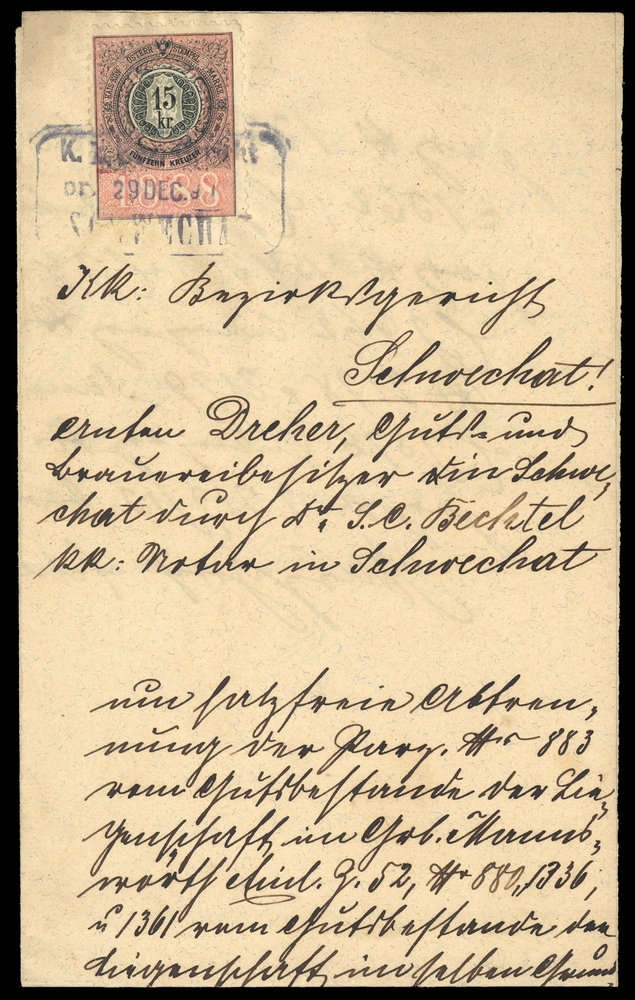 15
kr
FÜNFZEHN KREUZER
1888
29 DEC.
SCHWECHAT
KK: Bezirksgericht
Schwechat!
Anton Dreher, Guts- und
Brauereibesitzer in Schwe-
chat durch Dr. S. C. Bechtel
kk: Notar in Schwechat
um satzfreie Abtren-
nung der Parz. Nr 883
vom Gutsbestande der Lie-
genschaft im Grb. Manns-
wörth Einl. Z. 52, Nr 880, 1336,
u 1361 vom Gutsbestande der
Liegenschaft im selben Grund